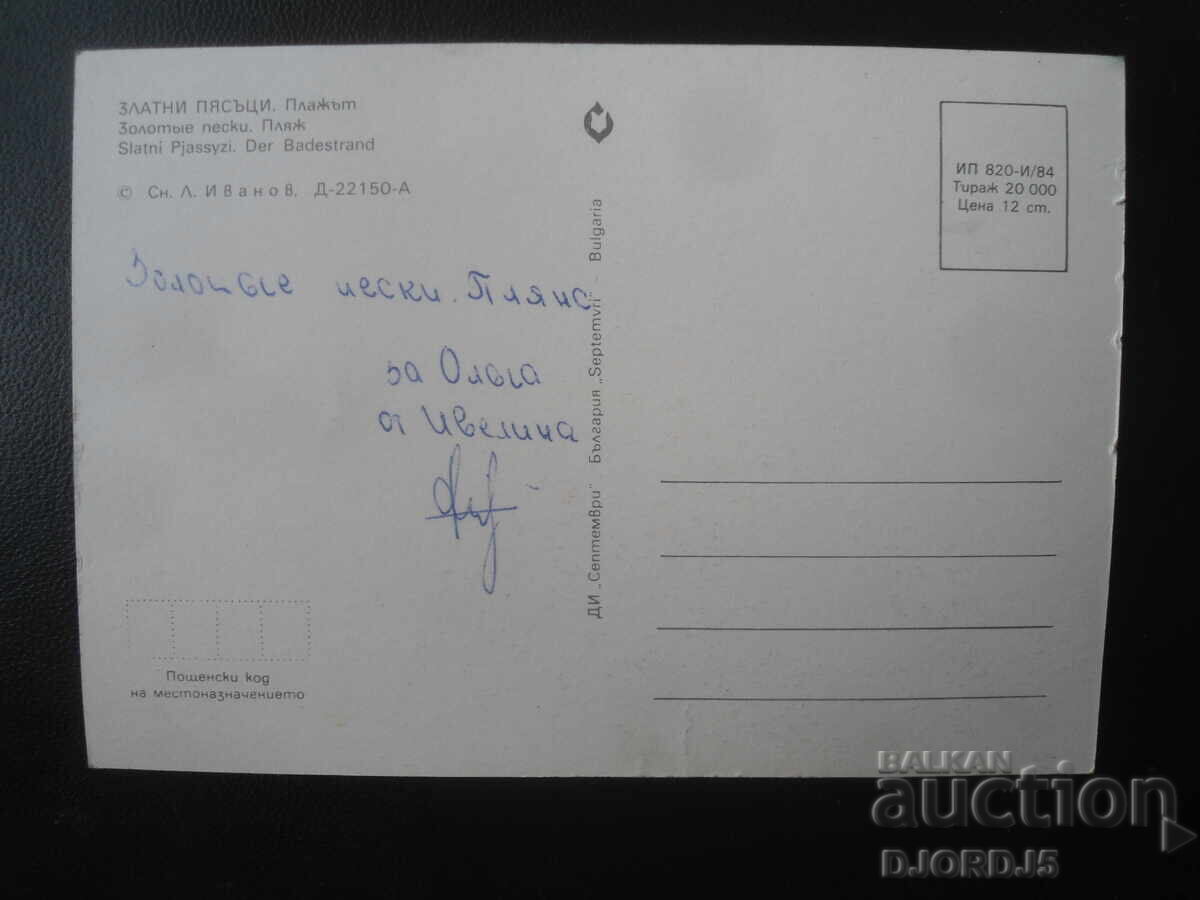 ЗЛАТНИ ПЯСЪЦИ. Плажът
Золотые пески. Пляж
Slatni Pjassyzi. Der Badestrand
© Сн. Л. Иванов. Д-22150-А
Золотые пески. Пляж
за Ольга
от Ивелина
Пощенски код
на местоназначението
ДИ „Септември" България „Septemvri" - Bulgaria
ИП 820-И/84
Тираж 20 000
Цена 12 ст.
BALKAN
auction
DJORDJ5